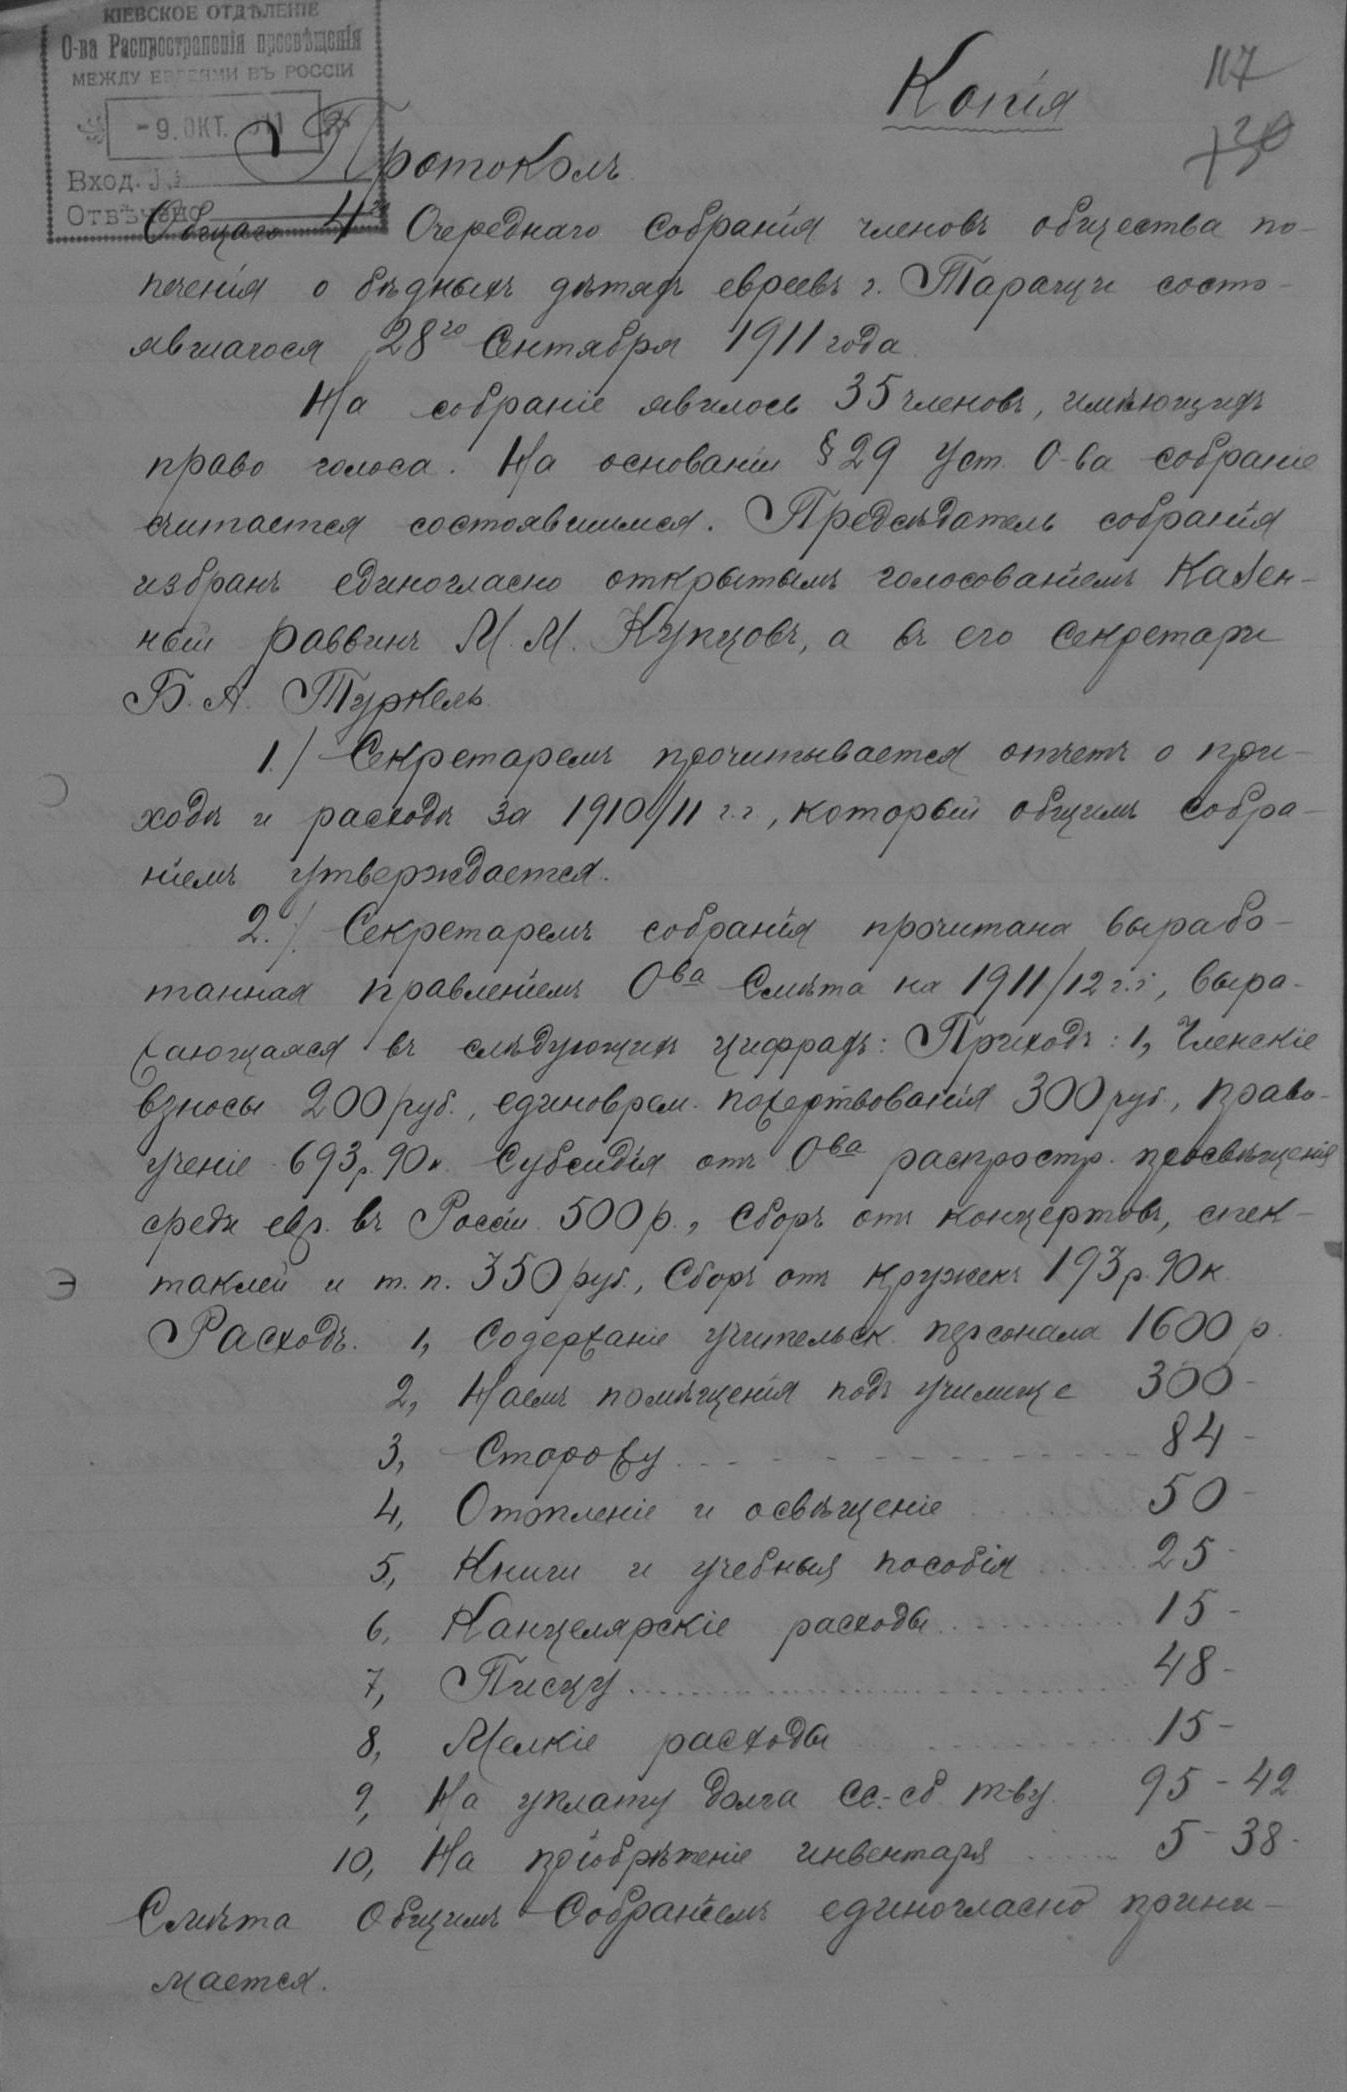 КІЕВСКОЕ ОТДѢЛЕНІЕ
О-ва Распространенія просвѣщенія
МЕЖДУ ЕВРЕЯМИ ВЪ РОССІИ
-9. ОКТ. 1911
Вход. №
Отвѣчено
117
Копія
Протоколъ
Общаго 4го Очереднаго собранія членовъ общества по-
печенія о бѣдныхъ дѣтяхъ евреевъ г. Таращи состо-
явшагося 28го Сентября 1911 года.
На собраніе явилось 35 членовъ, имѣющихъ
право голоса. На основаніи § 29 Уст. О-ва собраніе
считается состоявшимся. Предсѣдатель собранія
избранъ единогласно открытымъ голосованіемъ Казен-
ный раввинъ М. М. Купцовъ, а въ его секретари
Б. А. Туркель.
1./ Секретаремъ прочитывается отчетъ о при-
ходѣ и расходѣ за 1910/11 г.г., который общимъ собра-
ніемъ утверждается.
2./ Секретаремъ собранія прочитана вырабо-
танная правленіемъ Ова Смѣта на 1911/12 г.г., выра-
жающаяся въ слѣдующихъ цифрахъ: Приходъ: 1, Членскіе
взносы 200 руб., единоврем. пожертвованія 300 руб., право-
ученіе 693 р. 90 к. Субсидія отъ Ова распростр. просвѣщенія
среди евр. въ Россіи 500 р., Сборъ отъ концертовъ, спек-
таклей и т. п. 350 руб., Сборъ отъ кружекъ 193 р. 90 к.
Расходъ. 1, Содержаніе учительск. персонала 1600 р.
2, Наемъ помѣщенія подъ училище 300 -
3, Сторожу 84 -
4, Отопленіе и освѣщеніе 50 -
5, Книги и учебныя пособія 25 -
6, Канцелярскіе расходы 15 -
7, Писцу 48 -
8, Мелкіе расходы 15 -
9, На уплату долга сс.-сб. т-ву. 95 - 42
10, На пріобрѣтеніе инвентаря 5 - 38 -
Смѣта Общимъ Собраніемъ единогласно прини-
мается.